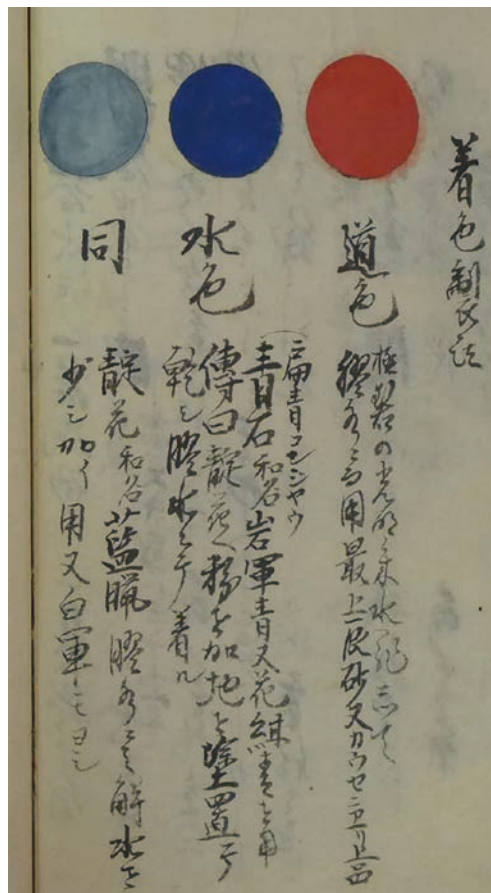 着色制方法
道色
極製の光明朱水飛して
膠水ニ而用最上辰砂又カウセニユ上品
水色
扁青コンシヤウ
青石和名岩軍青又花紺青を用
傳曰靛花ヘ粉を加地を塗置テ
乾シ膠水ニテ着ル
同
靛花和名藍臘膠水ニて解水を
少シ加ヘ用又白軍ニモヨシ